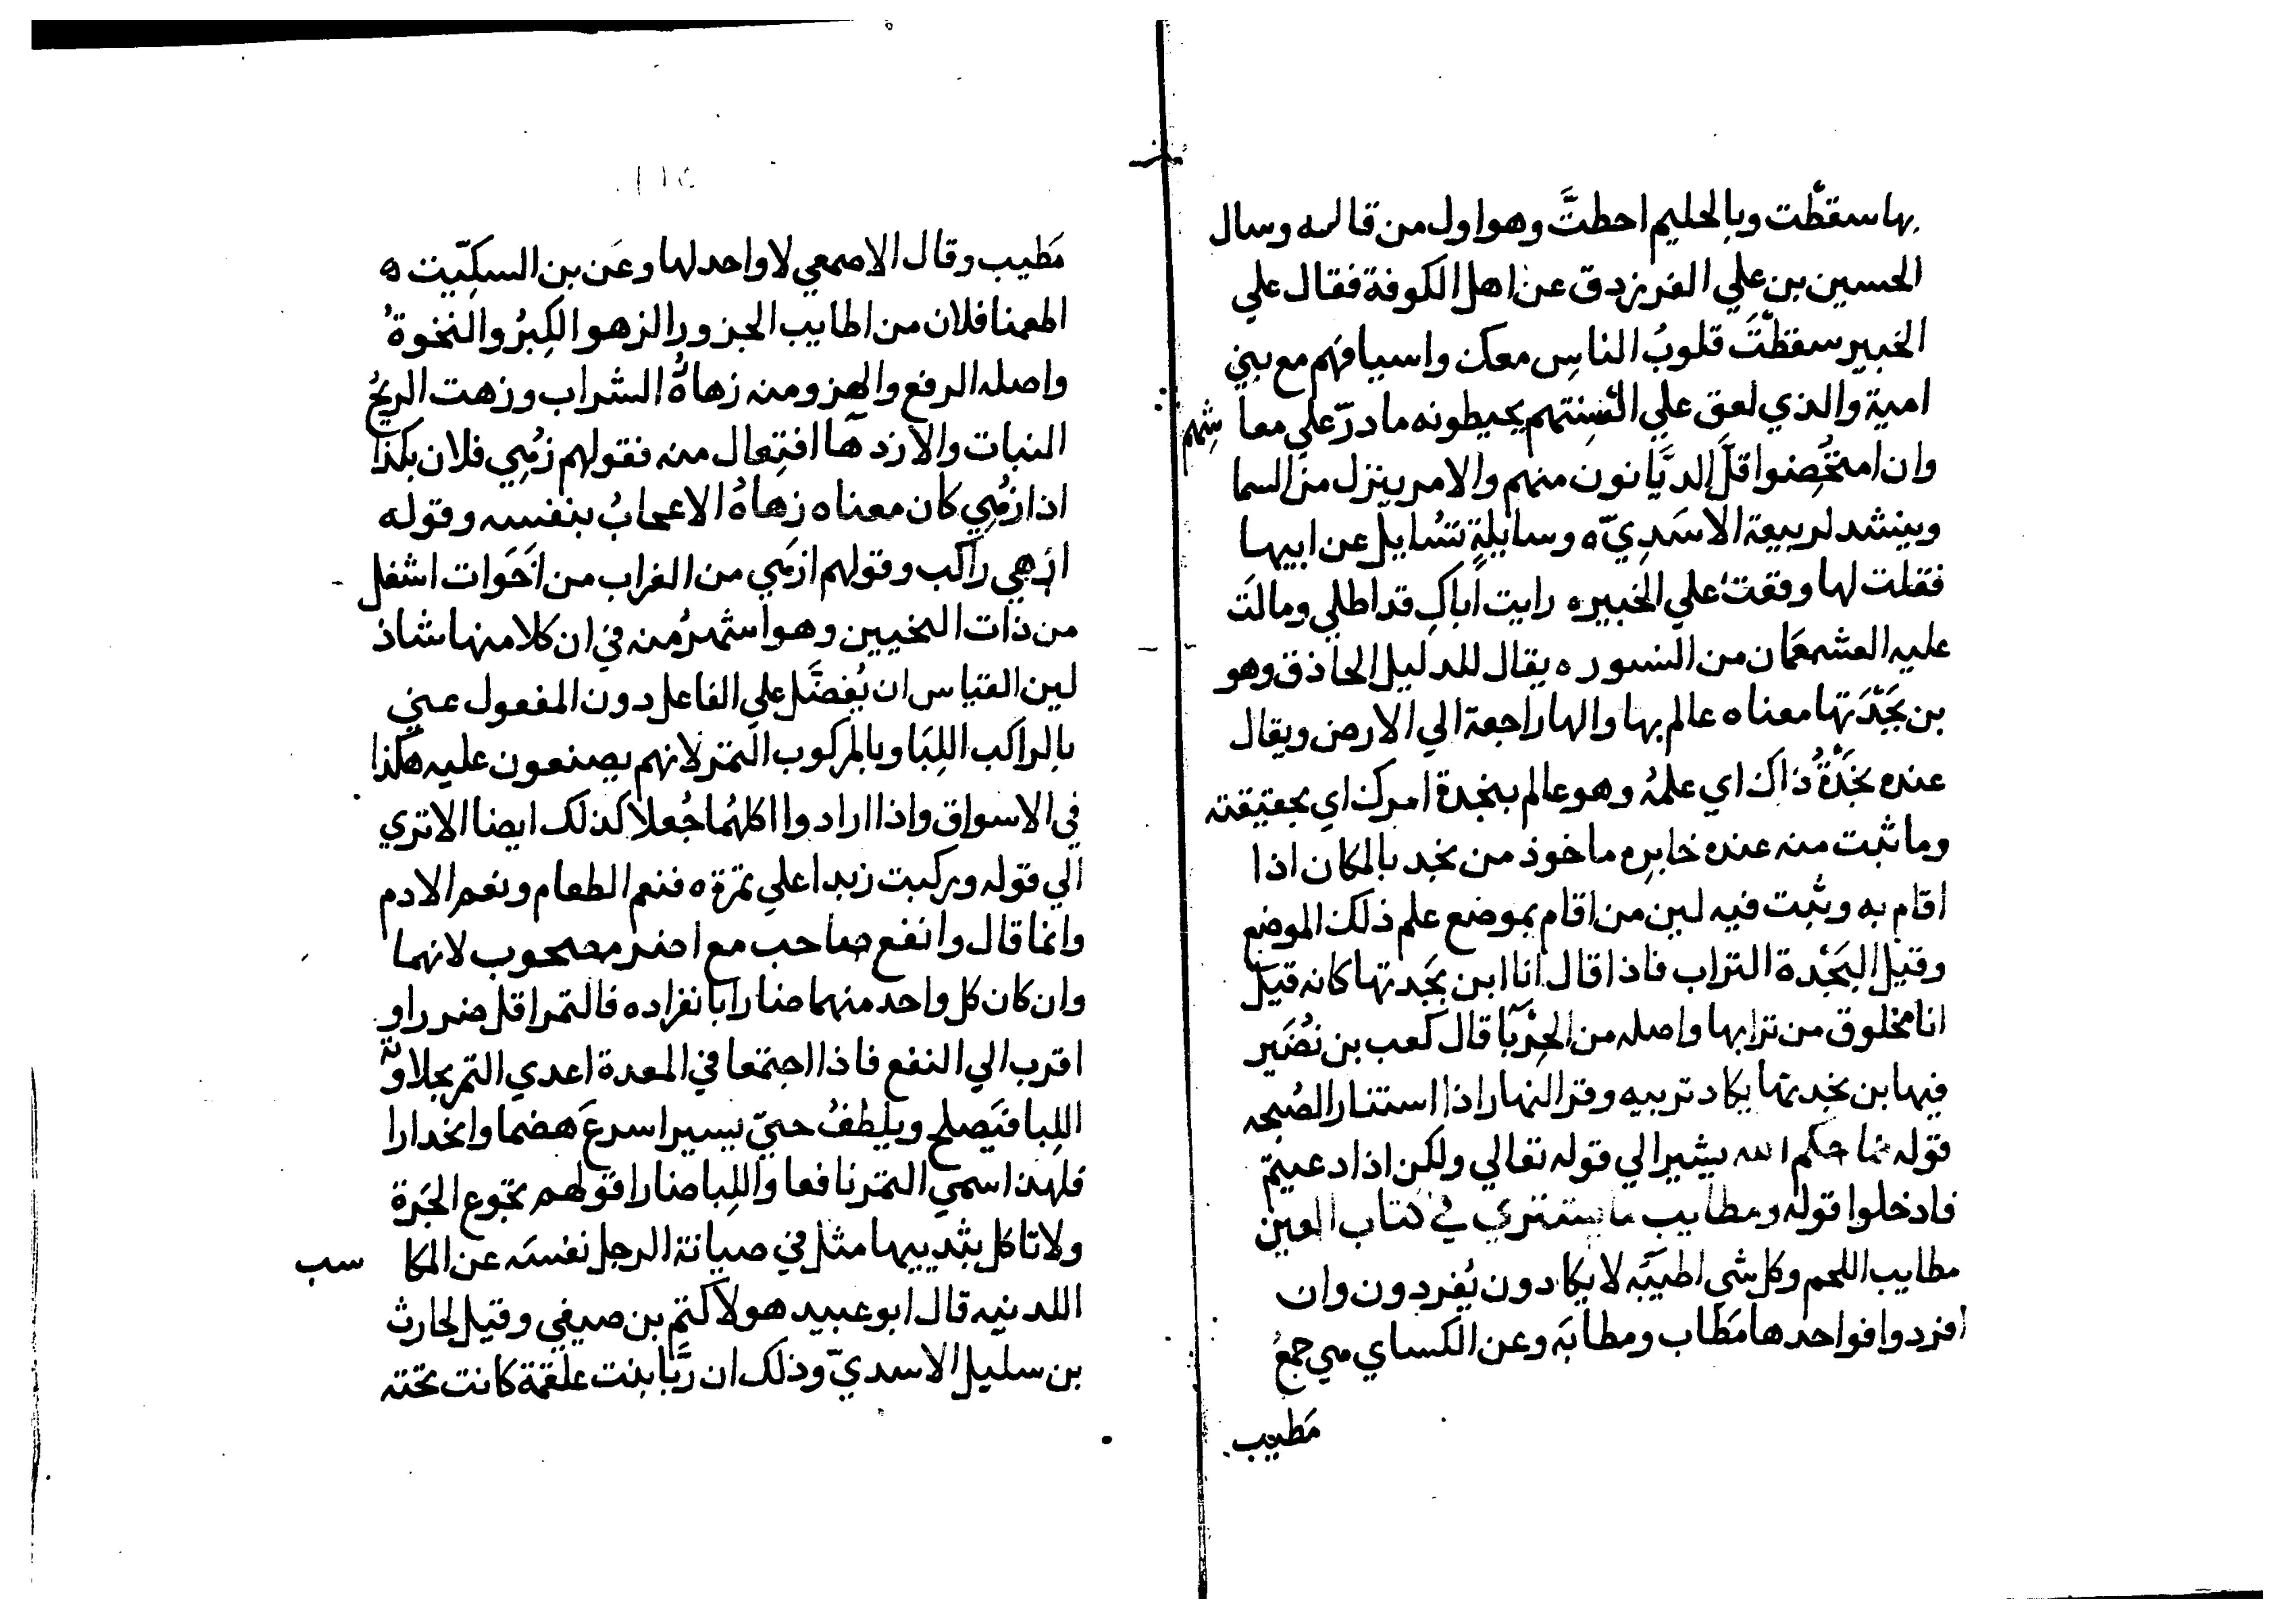 بها سقطت وبالحليم احطت وهو اول من قاله وسال
الحسين بن علي الفرزدق عن اهل الكوفة فقال علي
الخبير سقطت قلوب الناس معك واسيافهم مع بني
امية والذي لعق علي السنتهم يحيطونه ما در علي معا شهم
وان امتحصنوا قل الديانون منهم والامر ينزل من السما
وينشد لربيعة الاسدي ه وسايلة تسايل عن ابيها
فقلت لها وقفت علي الخبير ه رايت اباك قد اطلي ومالت
عليه القشعمان من النسور ه يقال للدليل الحاذق وهو
بن بجدتها معناه عالم بها والها راجعة الي الارض ويقال
عنده بجدة ذاك اي علمه وهو عالم ببجدة امرك اي بحقيقته
وما ثبت منه عنده خابره ماخوذ من بجد بالمكان اذا
اقام به وثبت فيه لين من اقام بموضع علم ذلك الموضع
وقيل البجدة التراب فاذا قال انا ابن بجدتها كانه قيل
انا مخلوق من ترابها واصله من الحربا قال كعب بن نضير
فيها بن بجدتها يكاد تربيه وقر النهار اذا استنار الصبحه
قوله مما حكم الله يشير الي قوله تعالي ولكن اذا دعيتم
فادخلوا قوله ومطايب ما يشتري في كتاب العين
مطايب اللحم وكل شي اطيبه لا يكادون يفردون وان
افردوا فواحدها مطاب ومطابه وعن الكساي هي جمع
مطيب
مطيب وقال الاصمعي لا واحد لها وعن بن السكيت ه
اطعمنا فلان من اطايب الجزور الزهو الكبر والنخوة
واصله الرفع والهز ومنه زهاه الشراب وزهت الريح
النبات والازدها افتعال منه فقولهم زهي فلان بكذا
اذا زهي كان معناه زهاه الاعجاب بنفسه وقوله
ازهي راكب وقولهم ازهي من الغراب من اخوات اشغل
من ذات النحيين وهو اشهر منه في ان كلا منها شاذ
لين القياس ان يفضل علي الفاعل دون المفعول عني
بالراكب اللبا وبالمركوب التمر لانهم يصنعون عليه هكذا
في الاسواق واذا ارادوا اكلهما جعلا كذلك ايضا الا تري
الي قوله وركبت زبدا علي تمرة ه فنعم الطعام ونعم الادم
وانما قال وانفع صاحب مع اضر مصحوب لانهما
وان كان كل واحد منهما ضارا بانفراده فالتمر اقل ضررا و
اقرب الي النفع فاذا اجتمعا في المعدة اعدي التمر بحلاوته
اللبا فيصلح ويلطف حتي يسير اسرع هضما وانحدارا
فلهذا سمي التمر نافعا واللبا ضارا قولهم تجوع الحرة
ولا تاكل بثدييها مثل في صيانة الرجل نفسه عن المكا سب
الدنيه قال ابو عبيد هو لاكثم بن صيفي وقيل لحارث
بن سليل الاسدي وذلك ان ربا بنت علقمة كانت تحته